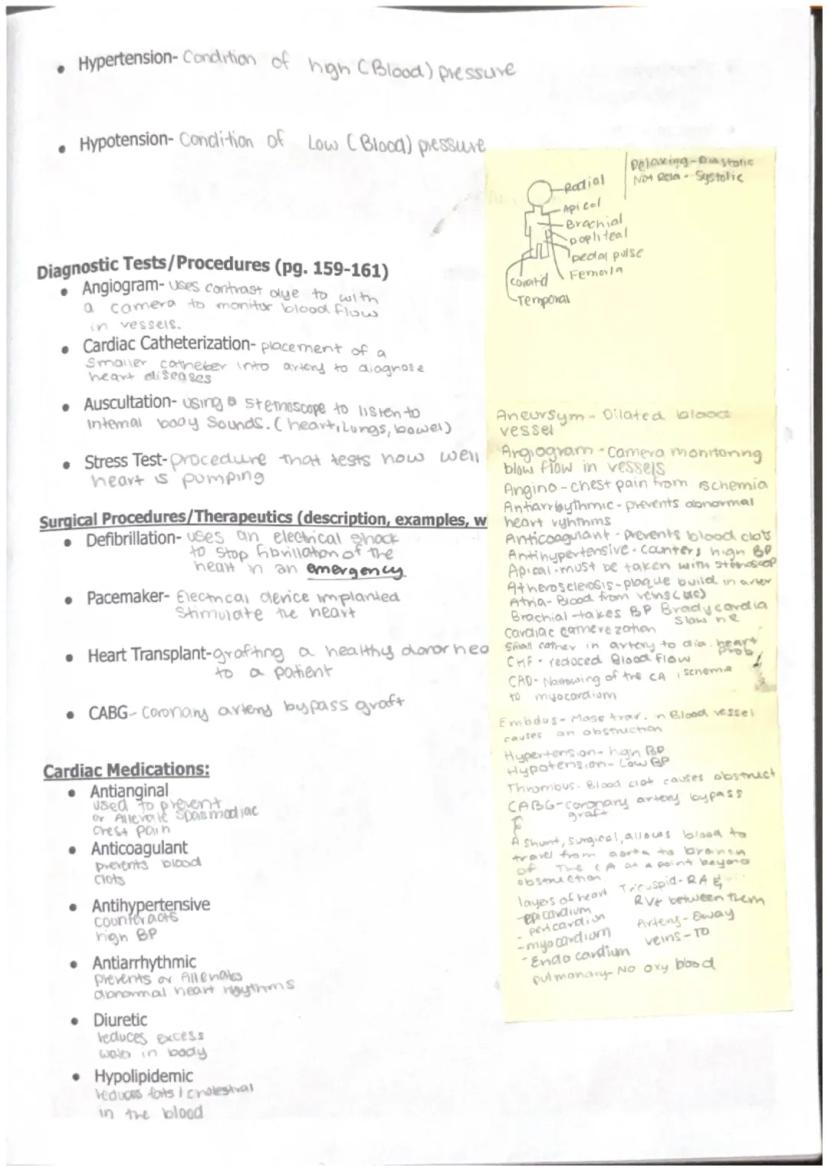 • Hypertension- Condition of high (Blood) pressure
• Hypotension- Condition of Low (Blood) pressure
Diagnostic Tests/Procedures (pg. 159-161)
• Angiogram- uses contrast dye to with
a camera to monitor blood flow
in vessels.
• Cardiac Catheterization- placement of a
smaller catheber into artery to diagnose
heart diseases
• Auscultation- using a stemoscope to listen to
Internal body sounds. (heart, lungs, bowel)
• Stress Test- procedure that tests how well
heart is pumping
Surgical Procedures/Therapeutics (description, examples, w
• Defibrillation- uses an electrical shock
to stop fibrillation of the
heart in an emergency
• Pacemaker- Electrical device implanted
Stimulate the heart
• Heart Transplant- grafting a healthy donor hea
to a patient
• CABG- Coronary artery bypass graft
Cardiac Medications:
• Antianginal
used to prevent
or Alleviate Spasmodiac
chest pain
• Anticoagulant
prevents blood
clots
• Antihypertensive
counteracts
high BP
• Antiarrhythmic
prevents or Alleviates
abnormal heart rhythms
• Diuretic
reduces excess
water in body
• Hypolipidemic
reduces fats / cholestral
in the blood
Relaxing - Diastolic
Not Rela - Systolic
Radial
Apical
Brachial
popliteal
pedal pulse
Femorla
Carotid
Temporal
Aneursym - Dilated blood
vessel
Angiogram - Camera monitoring
blow flow in vessels
Angina - chest pain from ischemia
Antiarrhythmic - prevents abnormal
heart ryhthms
Anticoagulant - Prevents blood clots
Antihypertensive - counters high BP
Apical - must be taken with
Atheroselerosis - plaque build in
Atria - Blood from veins
Brachial - takes BP Bradycardia
slow HR
Cardiac
Small in artery to dia. heart
prob
CHF - reduced Blood flow
CAD - Narrowing of the CA ischema
to myocardium
Embolus - Mass trav. in Blood vessel
causes an obstruction
Hypertension - high BP
Hypotension - Low BP
Thrombus - Blood clot causes obstruct
CABG - coronary artery bypass
graft
A shunt, surgical, allows blood to
travel from aorta to branch
of the CA at a point beyond
obstruction
layers of heart
- epicardium
- pericardium
- myocardium
- Endo cardium
Tricuspid - RA &
RV between them
Artery - away
veins - TO
pulmonary - No oxy blood